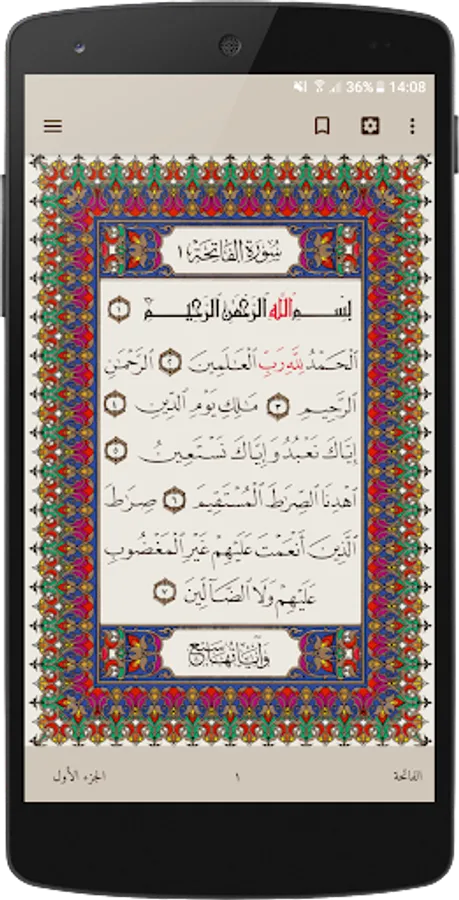 36% 14:08
سُورَةُ الفَاتِحَةِ ١
بِسْمِ اللَّهِ الرَّحْمَٰنِ الرَّحِيمِ ١
الْحَمْدُ لِلَّهِ رَبِّ الْعَالَمِينَ ٢ الرَّحْمَٰنِ
الرَّحِيمِ ٣ مَالِكِ يَوْمِ الدِّينِ ٤
إِيَّاكَ نَعْبُدُ وَإِيَّاكَ نَسْتَعِينُ ٥
اهْدِنَا الصِّرَاطَ الْمُسْتَقِيمَ ٦ صِرَاطَ
الَّذِينَ أَنْعَمْتَ عَلَيْهِمْ غَيْرِ الْمَغْضُوبِ
عَلَيْهِمْ وَلَا الضَّالِّينَ ٧
وَآيَاتُهَا سَبْعٌ
الفاتحة ١ الجزء الأول